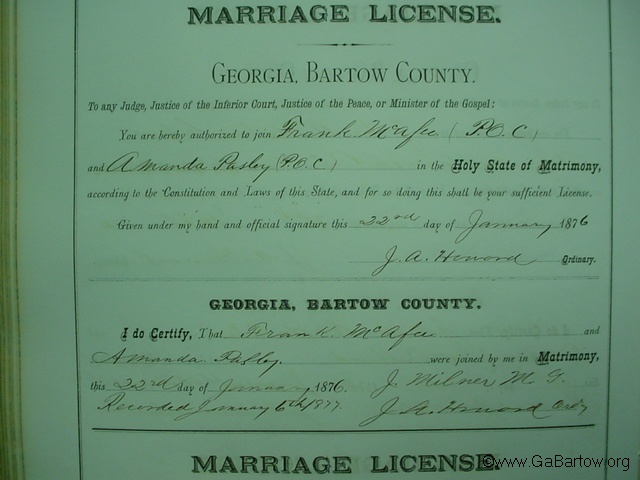 MARRIAGE LICENSE.
GEORGIA, BARTOW COUNTY.
To any Judge, Justice of the Inferior Court, Justice of the Peace, or Minister of the Gospel:
You are hereby authorized to join Frank McAfee (P.O.C)
and Amanda Pasley (P.O.C) in the Holy State of Matrimony,
according to the Constitution and Laws of this State, and for so doing this shall be your sufficient License.
Given under my hand and official signature this 22nd day of January 1876
J. A. Howard Ordinary.
GEORGIA, BARTOW COUNTY.
I do Certify, That Frank McAfee and
Amanda Pasley were joined by me in Matrimony,
this 22rd day of January 1876. J. Milner M. G.
Recorded January 6th 1877. J. A. Howard Ordy
MARRIAGE LICENSE.
©www.GaBartow.org